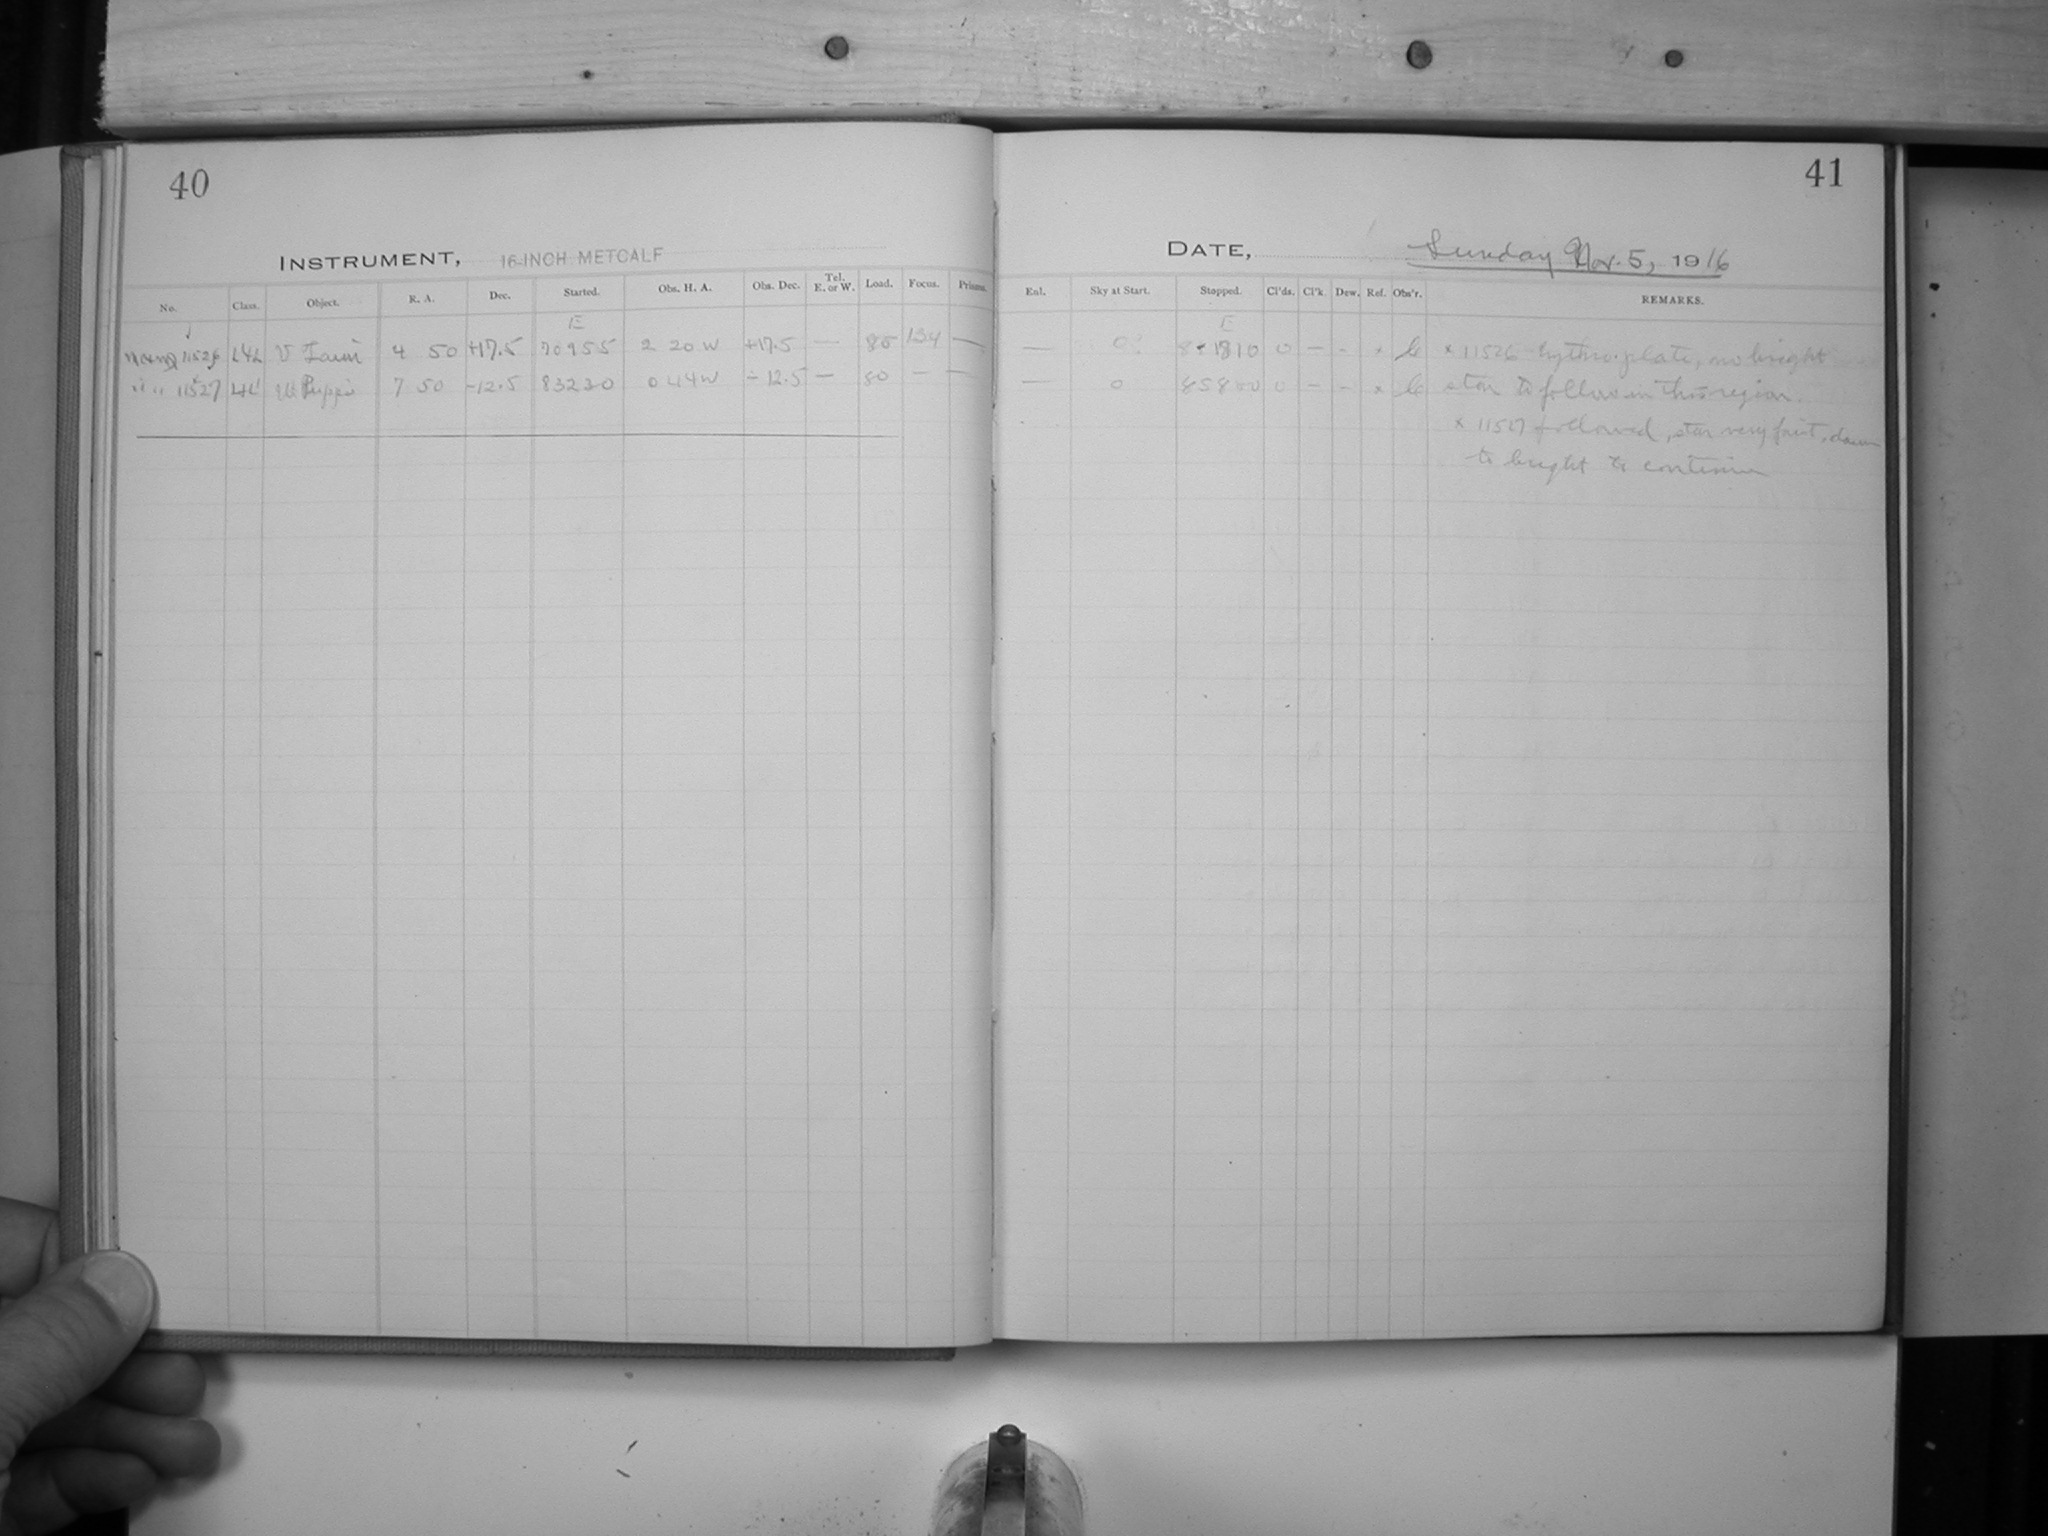 40
41
INSTRUMENT, 16-INCH METCALF
DATE, Sunday Nov. 5, 1916
No. Class. Object. R. A. Dec. Started. Obs. H. A. Obs. Dec. Tel. E. or W. Load. Focus. Prisms. Enl. Sky at Start. Stopped. Cl'ds. Cl'k. Dew. Ref. Obs'r. REMARKS.
E E
11526 L4L V Tauri 4 50 +17.5 70955 2 20 W +17.5 — 80 134 — — 0 1810 0 — - x x 11526 hydro. plate, no bright
" " 11527 L4L U Puppis 7 50 -12.5 83230 0 44 W -12.5 — 80 — — — 0 85800 0 — - x star to follow in this region.
x 11527 followed, star very faint, dawn
to bright to continue